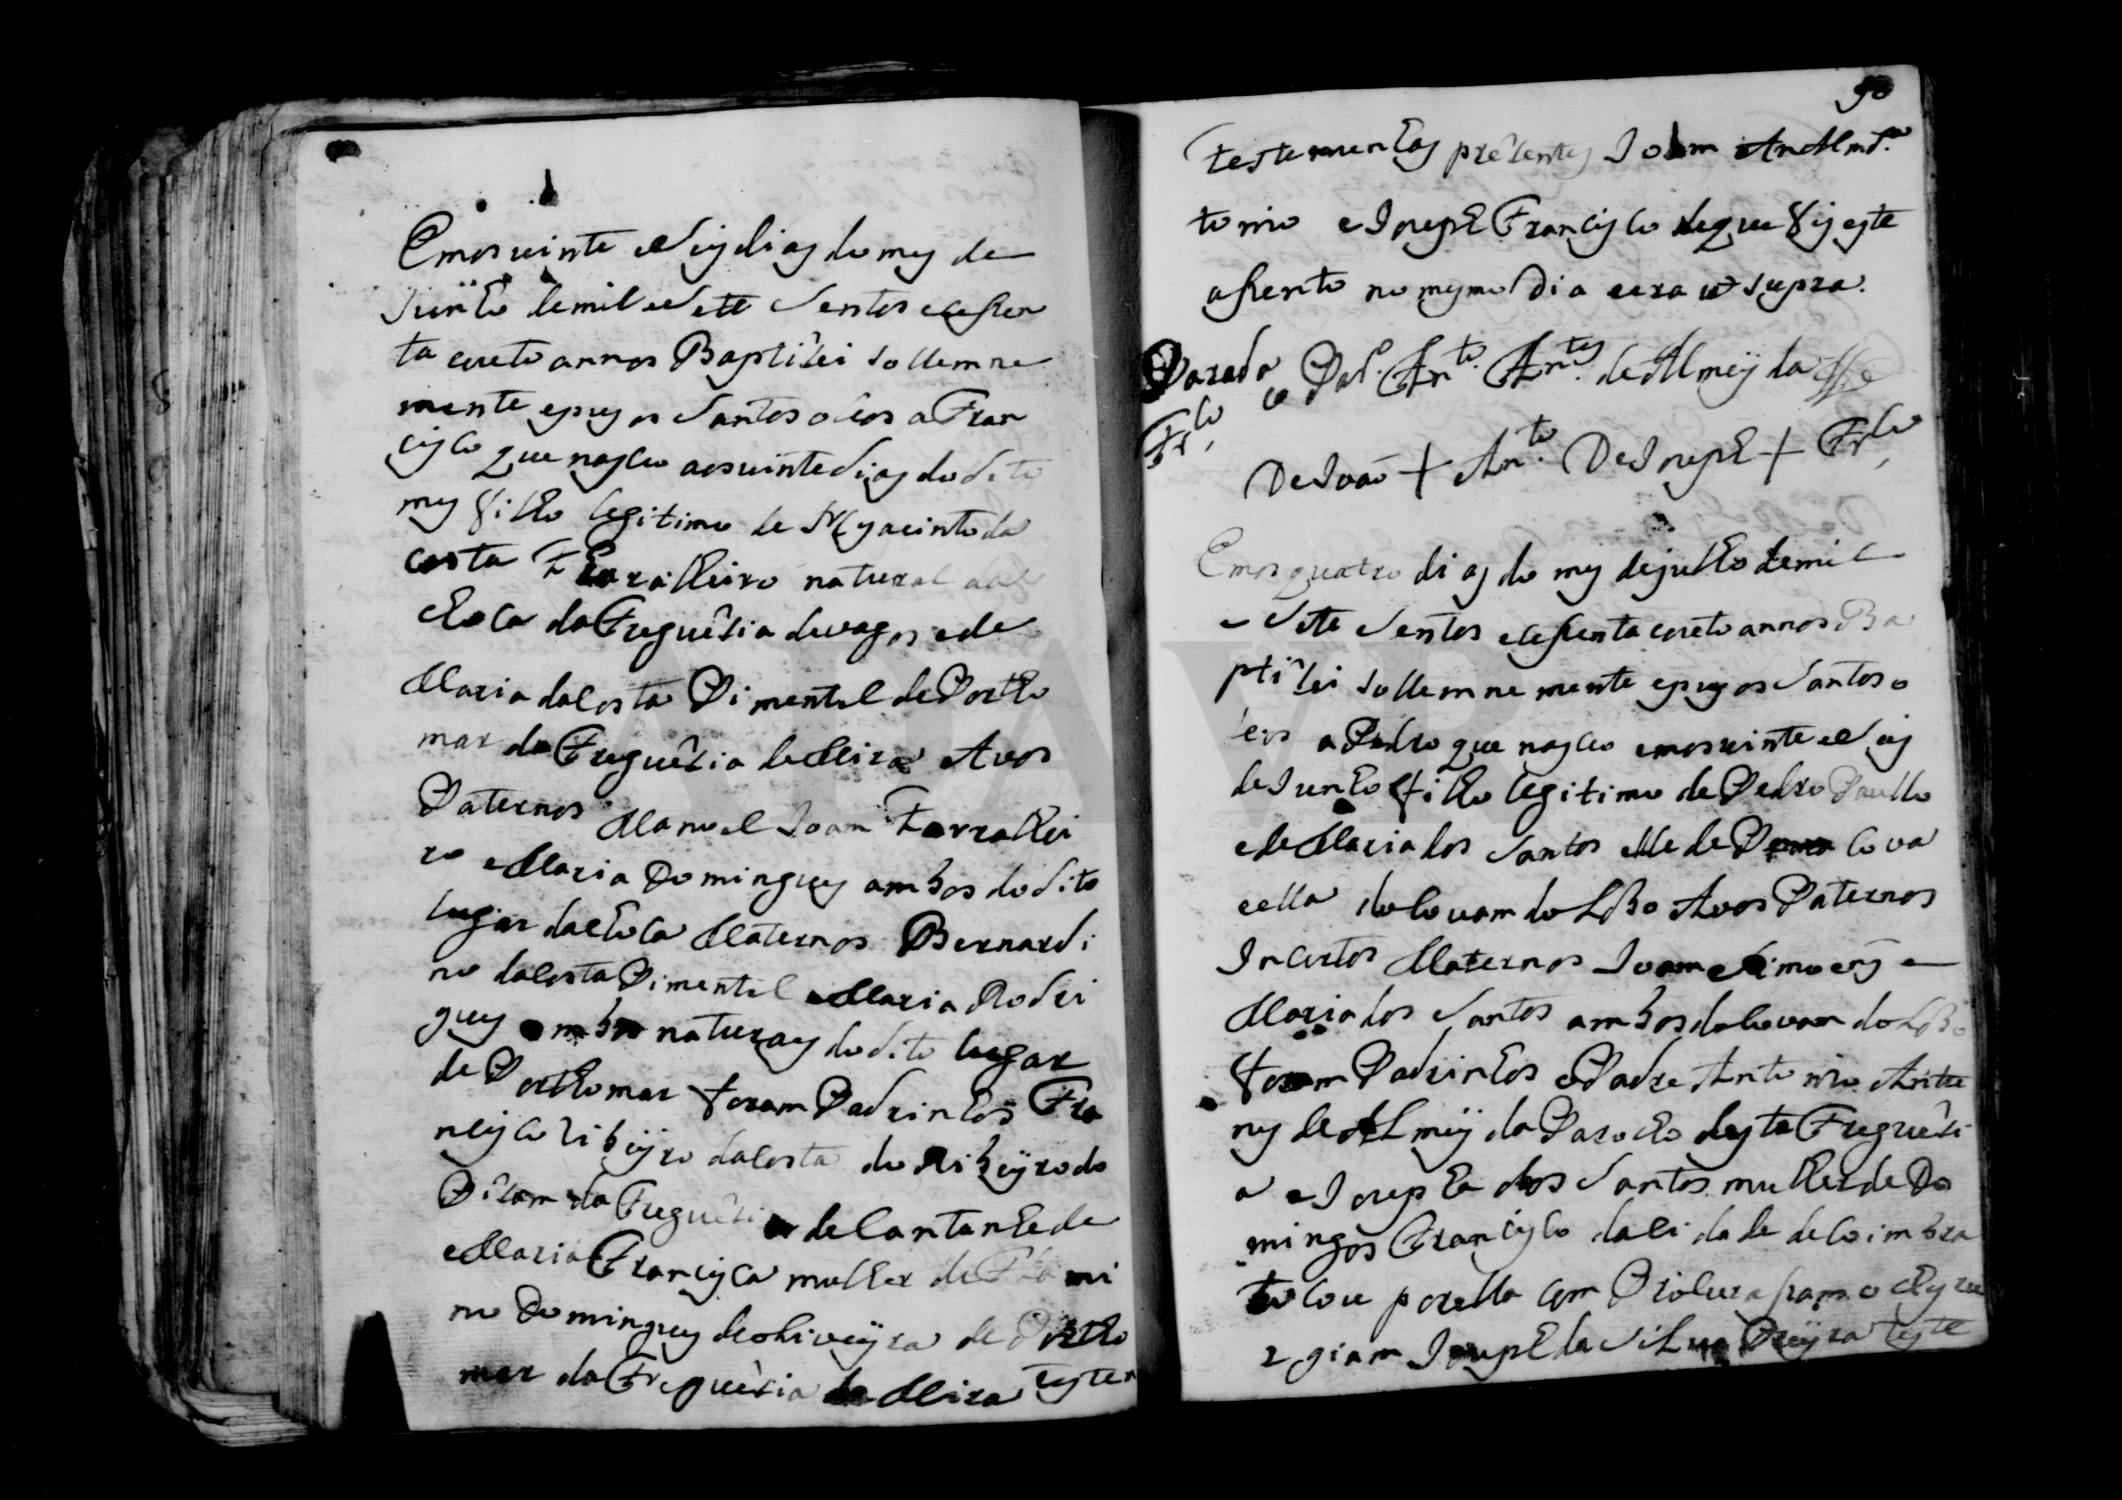 Emos vinte e Seis dias do mes de
Junho de mil e Sette Sentos e cessen
ta e outo annos Baptizei Sollemne
mente e pus os Santos oleos a Fran
cisco que nasceo aos vinte dias do dito
mes filho legitimo de Hyacinto da
costa natural da
choca da Freguesia de vagos e de
Maria da Costa Pimentel de Portho
mar da Freguesia de Mira Avos
Paternos Manoel Joam Farralhei
ro e Maria Domingues ambos do dito
lugar da choca Maternos Bernardi
no da Costa Pimentel e Maria Rodri
gues ambos naturaes do dito lugar
de Porthomar foram Padrinhos Fra
ncisco ribeÿro da Costa do RibeÿRo do
da Freguesia de Cantanhede
e Maria Francisca mulher de
no Domingues de oliveÿra de Portho
mar da Freguesia de Mira teste
90
testemunhas prezentes Joam An
tonio e Joseph Francisco de que fis este
assento no mesmo Dia e era ut supra.
o Pad.e Ant.o Ant.es de Almeÿda
Fr.co
De Joaõ + An.to De Joseph + Fr.co
Emos quatro dias do mes de julho de mil
e Sette Sentos e cessenta e outo annos Ba
ptizei Sollemnemente e pus os Santos o
leos a Pedro que nasceo emos vinte e Seis
de Junho filho legitimo de Pedro Paullo
e de Maria dos Santos elle de cova
e ella do Covam do Lobo Avos Paternos
Incertos Maternos Joam Simoens e
Maria dos Santos ambos do Covam do Lobo
foram Padrinhos o Padre Antonio Antu
nes de ALmeÿda Parocho desta Freguezi
a e Josepha dos Santos mulher de Do
mingos Francisco da Cidade de Coimbra
tocou por ella com Procurassam o
giam Joseph da SiLva PreÿRa teste